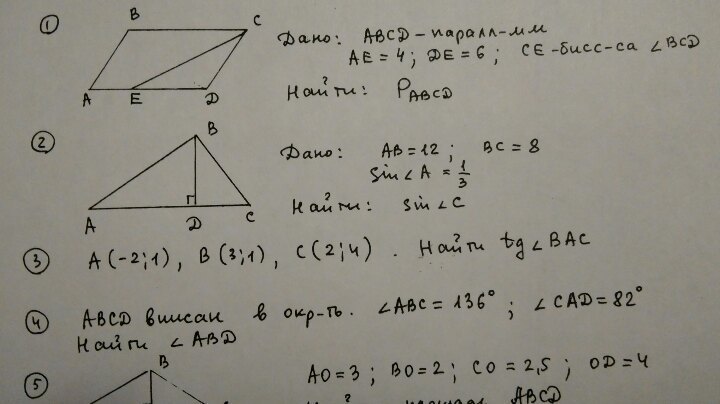 1
B C
A E D
Дано: ABCD-паралл-мм
AE=4; DE=6; CE-бисс-са ∠BCD
Найти: P_ABCD
2
B
A D C
Дано: AB=12; BC=8
sin∠A = 1/3
Найти: sin∠C
3 A(-2;1), B(3;1), C(2;4). Найти tg∠BAC
4 ABCD вписан в окр-ть. ∠ABC=136°; ∠CAD=82°
Найти ∠ABD
5
B
AO=3; BO=2; CO=2,5; OD=4
ABCD